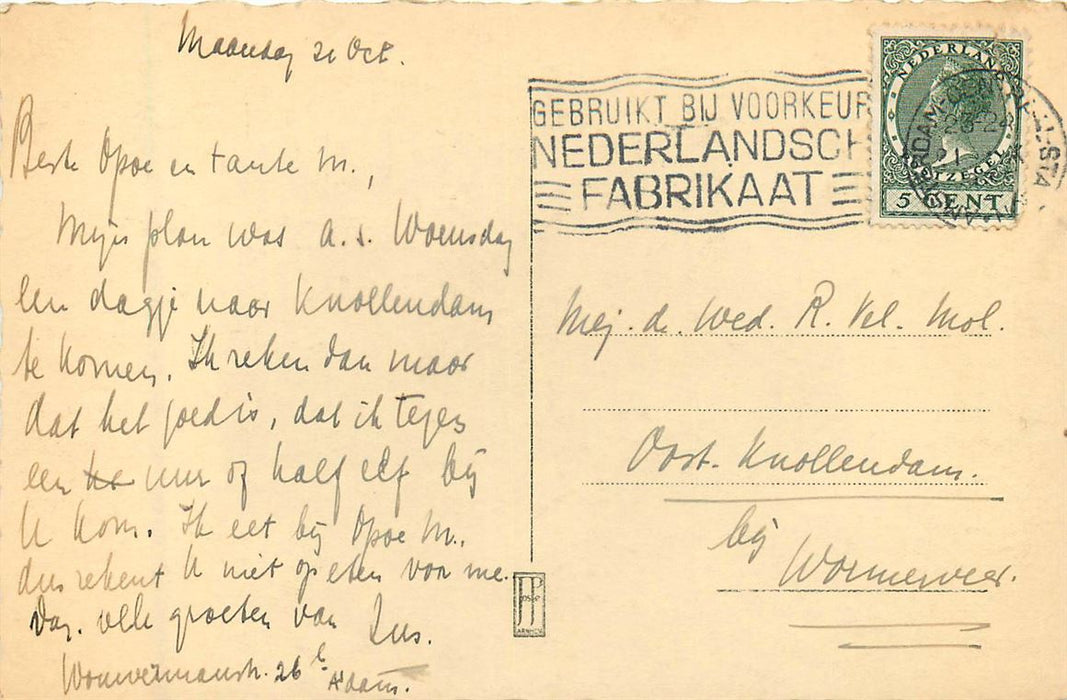 Maandag 21 Oct.
Beste Opoe en tante M.,
Mijn plan was a.s. Woensdag
een dagje naar Knollendam
te komen. Ik reken dan maar
dat het goed is, dat ik tegen
een uur of half elf bij
U kom. Ik eet bij Opoe M.
dus rekent U niet op eten voor me.
Dag. vele groeten van Zus.
Wouwermanstr. 26 A'dam.
GEBRUIKT BIJ VOORKEUR
NEDERLANDSCH
FABRIKAAT
NEDERLAND
POSTZEGEL
5 CENT
Mej. de Wed. R. Vel. Mol.
Oost. Knollendam.
bij
Wormerveer.
JP